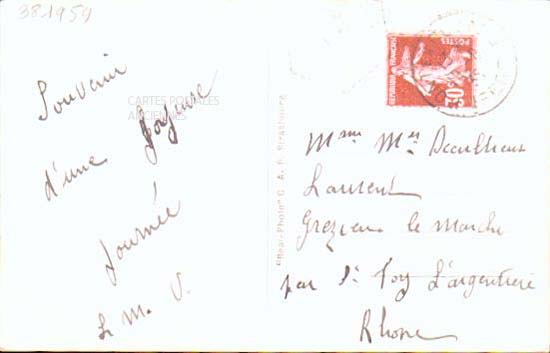 381959
Souvenir
d'une Joyeuse
Journée
M. V.
CARTES POSTALES
ANCIENNES
"Réal-Photo" C. A. P. Strasbourg
REPUBLIQUE FRANÇAISE
POSTES
30
Mme Mr
Laurent
Grezieu le Marché
par St Foy l'argentiere
Rhone